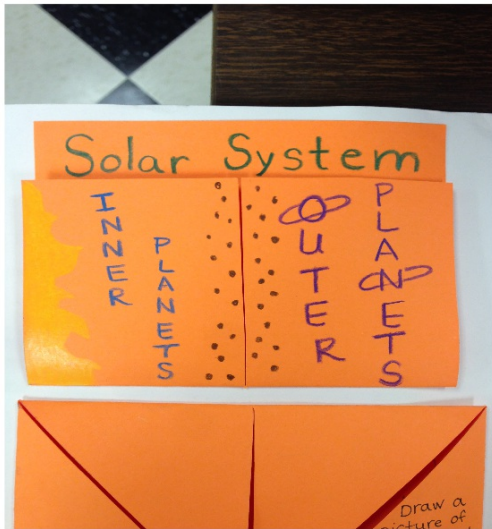 Solar System
INNER
PLANETS
OUTER
PLANETS
Draw a
picture of